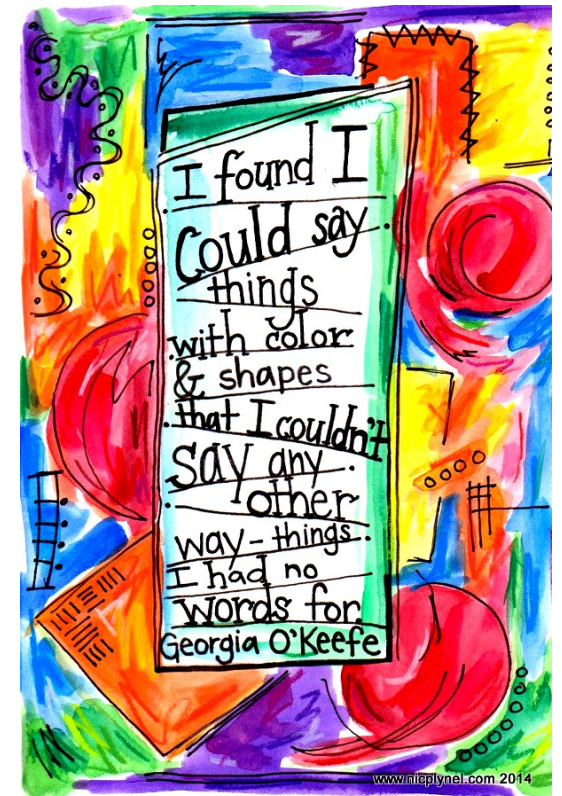 I found I
Could say
things
with color
& shapes
that I couldn't
say any
other
way - things
I had no
words for
Georgia O'Keefe
www.nicplynel.com 2014